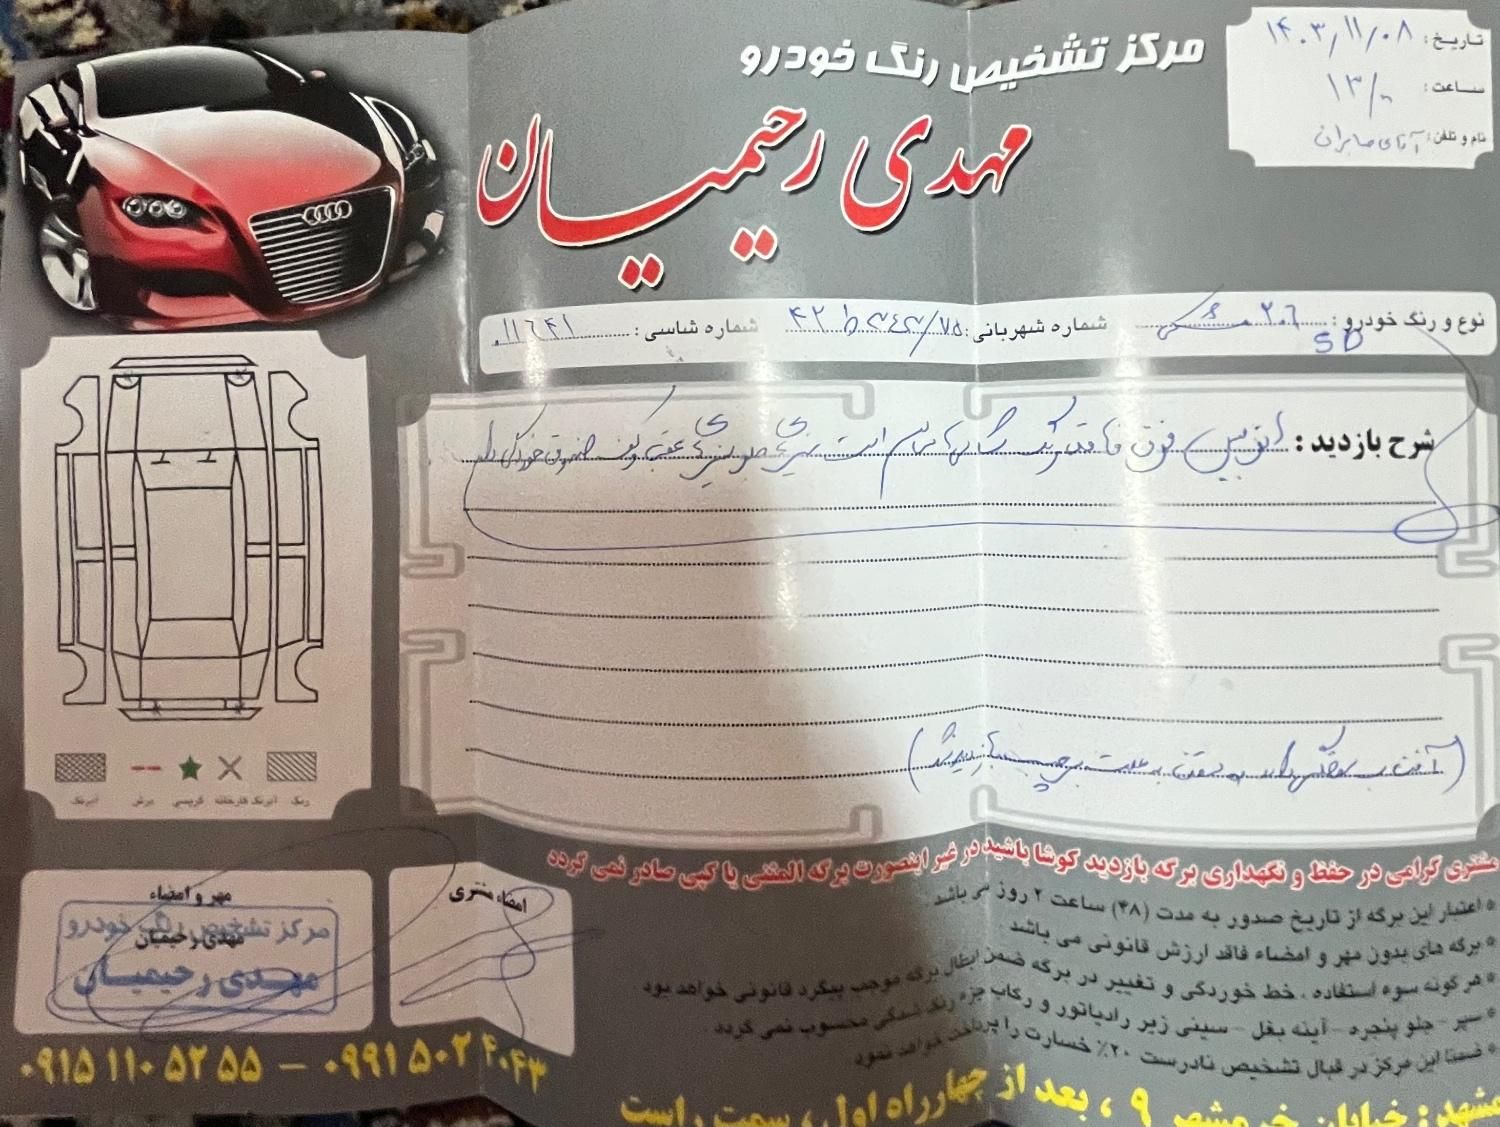 مرکز تشخیص رنگ خودرو
مهدی رحیمیان
تاریخ: ۱۴۰۳/۱۱/۰۸
ساعت: ۱۳/۰۰
نام و تلفن: آقای صابران
نوع و رنگ خودرو: ۲۰۶ مشکی
SD
شماره شهربانی:
شماره شاسی: ۰۱۱۶۴۱
شرح بازدید: اتومبیل فوق فاقد رنگ شاسی‌ها سالم است سینی جلو سینی عقب کف صندوق خوردگی دارد
رنگ آبرنگ کارخانه گریسی برش آبرنگ
مشتری گرامی در حفظ و نگهداری برگه بازدید کوشا باشید در غیر اینصورت برگه المثنی یا کپی صادر نمی گردد
* اعتبار این برگه از تاریخ صدور به مدت (۴۸) ساعت ۲ روز می باشد
* برگه های بدون مهر و امضاء فاقد ارزش قانونی می باشد.
* هرگونه سوء استفاده ، خط خوردگی و تغییر در برگه ضمن ابطال برگه موجب پیگرد قانونی خواهد بود
* سپر - جلو پنجره - آینه بغل - سینی زیر رادیاتور و رکاب جزء رنگ شدگی محسوب نمی گردد .
* ضمنا این مرکز در قبال تشخیص نادرست ۲۰٪ خسارت را پرداخت خواهد نمود
امضاء مشتری
مهر و امضاء
مهدی رحیمیان
مرکز تشخیص رنگ خودرو
مهدی رحیمیان
۰۹۱۵ ۱۱۰ ۵۲ ۵۵ – ۰۹۹۱ ۵۰۲ ۴۰۴۳
مشهد: خیابان خرمشهر ۹ ، بعد از چهارراه اول ، سمت راست